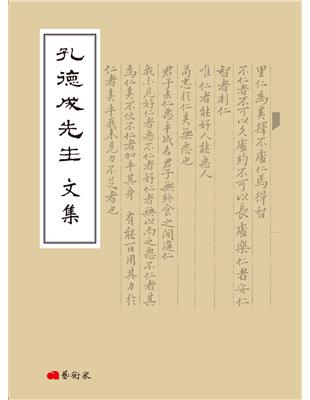 孔德成先生 文集
里仁為美擇不處仁焉得智
不仁者不可以久處約不可以長處樂仁者安仁
智者利仁
唯仁者能好人能惡人
苟志於仁矣無惡也
君子去仁惡乎成名君子無終食之間違仁
我未見好仁者惡不仁者好仁者無以尚之惡不仁者其
為仁矣不使不仁者加乎其身 有能一日用其力於
仁者矣乎我未見力不足者也
藝術家